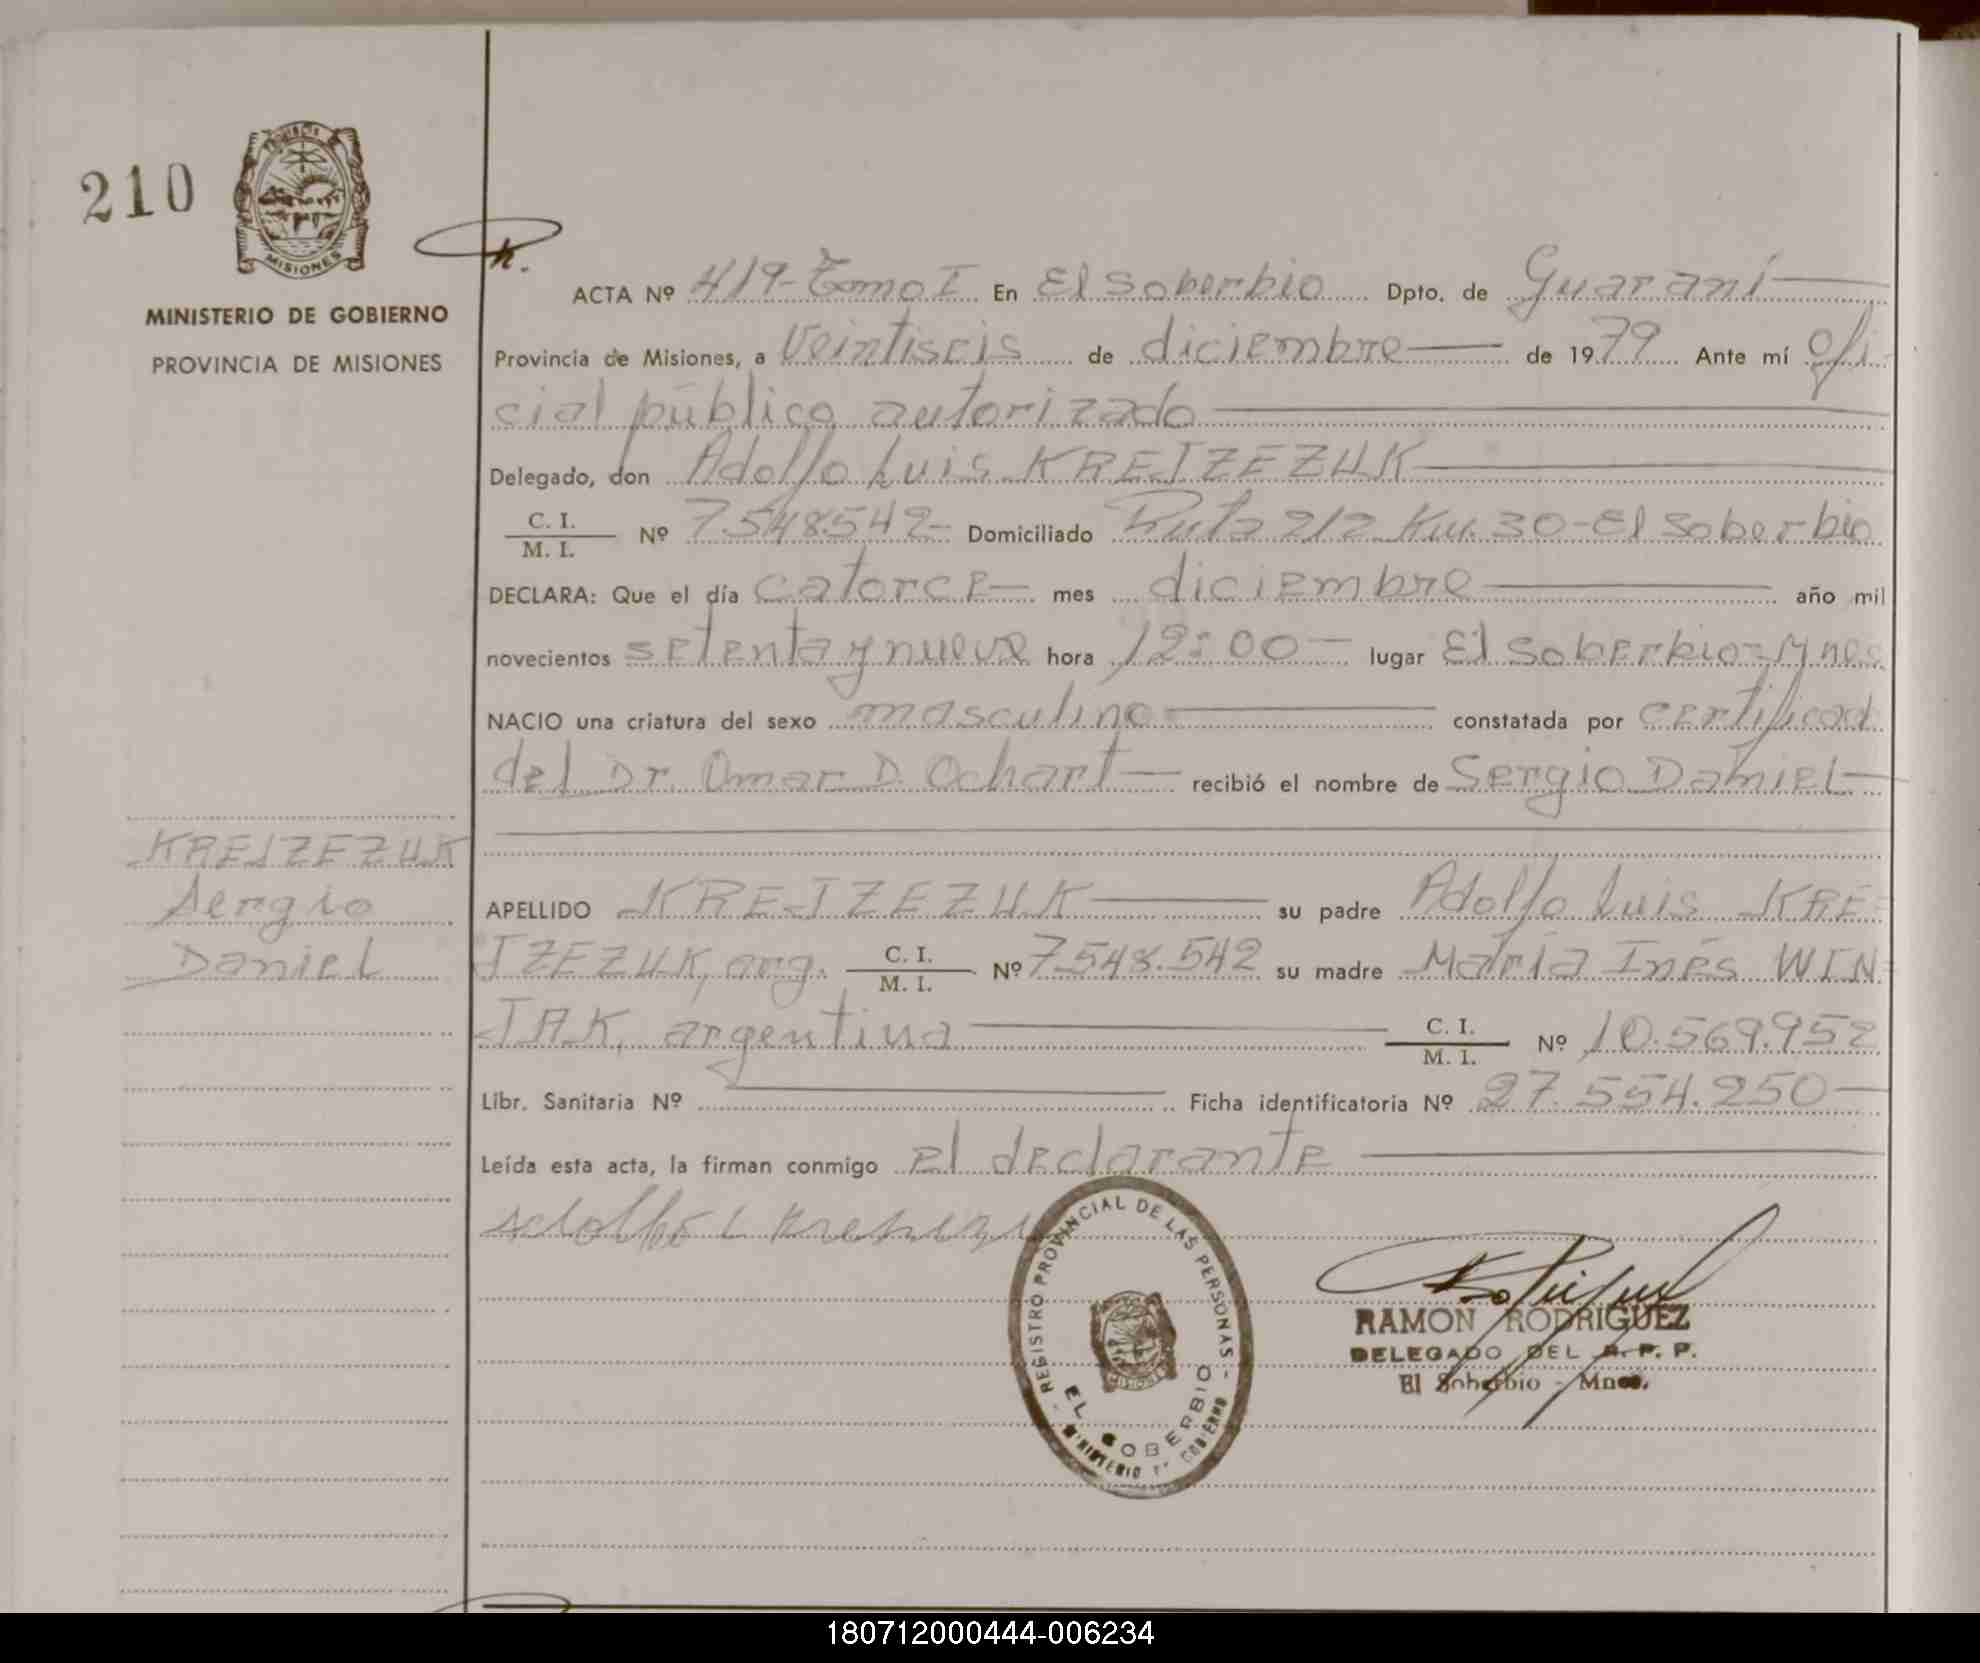 210
MISIONES
MINISTERIO DE GOBIERNO
PROVINCIA DE MISIONES
ACTA Nº 419-Tomo I En El Soberbio Dpto. de Guaraní
Provincia de Misiones, a Veintiseis de diciembre de 1979 Ante mí Ofi-
cial público autorizado
Delegado, don Adolfo Luis KREJZEZUK
C. I.
M. I. Nº 7.548.542- Domiciliado Ruta 212 Km. 30-El Soberbio
DECLARA: Que el día catorce mes diciembre año mil
novecientos setenta y nueve hora 12:00 lugar El Soberbio-Mnes
NACIO una criatura del sexo masculino constatada por certificad
del Dr. Omar D. Ochart recibió el nombre de Sergio Daniel
KREJZEZUK
Sergio
Daniel
APELLIDO KREJZEZUK su padre Adolfo Luis KRE=
JZEZUK, arg. C. I.
M. I. Nº 7.548.542 su madre María Inés WIN=
JAK, argentina C. I.
M. I. Nº 10.569.952
Libr. Sanitaria Nº Ficha identificatoria Nº 27.554.250
Leída esta acta, la firman conmigo el declarante
Adolfo L
REGISTRO PROVINCIAL DE LAS PERSONAS
EL SOBERBIO
MINISTERIO DE GOBIERNO
MISIONES
RAMON RODRIGUEZ
DELEGADO DEL R. P. P.
El Soberbio - Mnes.
180712000444-006234